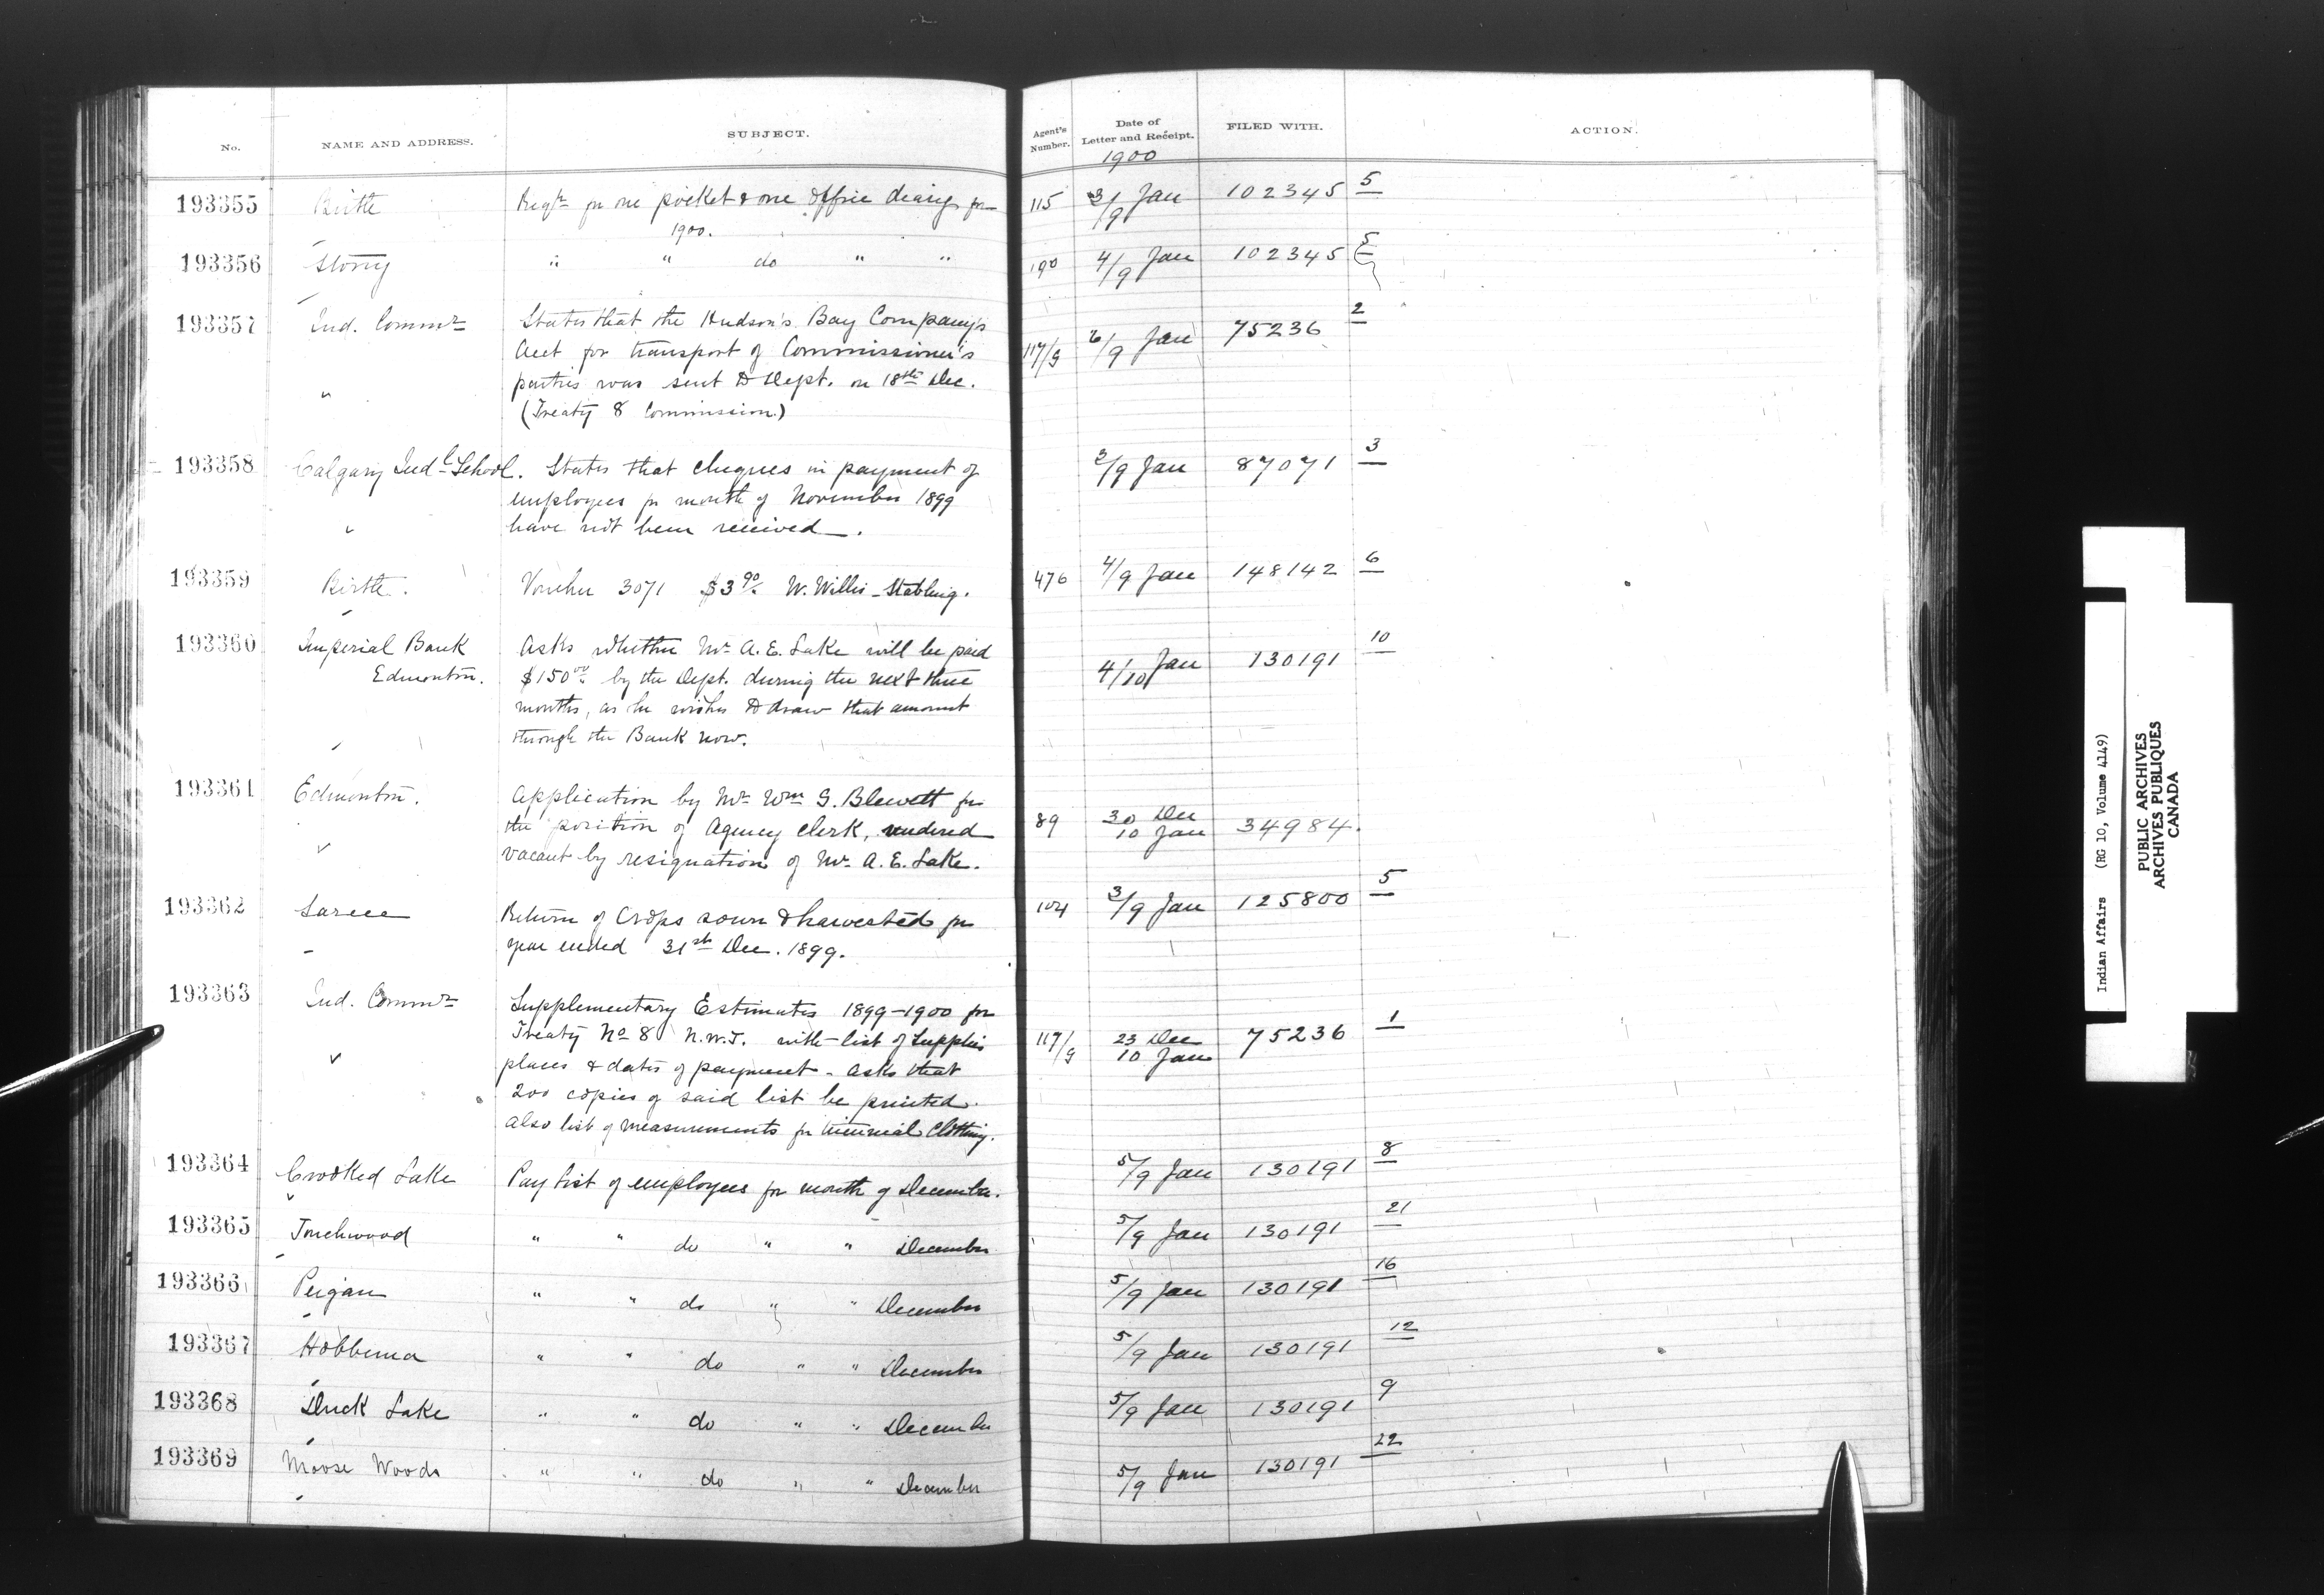 No. NAME AND ADDRESS. SUBJECT. Agent's Number. Date of Letter and Receipt. FILED WITH. ACTION.
1900
193355 Birtle Reqn for one pocket & one office diary for 115 3/9 Jan 102345 5
1900.
193356 Stony " " do " " 190 4/9 Jan 102345 5
193357 Ind. Commr States that the Hudson's Bay Company's 117/9 6/9 Jan 75236 2
Acct for transport of Commissioner's
" parties was sent to Dept. on 18th Dec.
(Treaty 8 Commission)
193358 Calgary Indl School. States that cheques in payment of 3/9 Jan 87071 3
employees for month of November 1899
have not been received.
193359 Birtle. Voucher 3071 $3 90/ W. Willis - Stabling. 476 4/9 Jan 148142 6
193360 Imperial Bank Asks whether Mr A. E. Lake will be paid 4/10 Jan 130191 10
Edmonton. $150 00 by the Dept. during the next three
months, as he wishes to draw that amount
through the Bank now.
193361 Edmonton. Application by Mr Wm G. Blewett for 89 30 Dec 10 Jan 34984.
the position of Agency Clerk, rendered
vacant by resignation of Mr A. E. Lake.
193362 Sarcee Return of Crops sown & harvested for 104 3/9 Jan 125800 5
year ended 31st Dec. 1899.
193363 Ind. Commr Supplementary Estimates 1899-1900 for 117/9 23 Dec 10 Jan 75236 1
Treaty No 8 N.W.T. with list of supplies
places & dates of payment - asks that
200 copies of said list be printed.
also list of measurements for triennial clothing.
193364 Crooked Lake Pay list of employees for month of December. 5/9 Jan 130191 8
193365 Touchwood " " do " " December 5/9 Jan 130191 21
193366 Peigan " " do " " December 5/9 Jan 130191 16
193367 Hobbema " " do " " December 5/9 Jan 130191 12
193368 Duck Lake " " do " " December 5/9 Jan 130191 9
193369 Moose Woods " " do " " December 5/9 Jan 130191 22
Indian Affairs (RG 10, Volume 4149)
PUBLIC ARCHIVES
ARCHIVES PUBLIQUES
CANADA